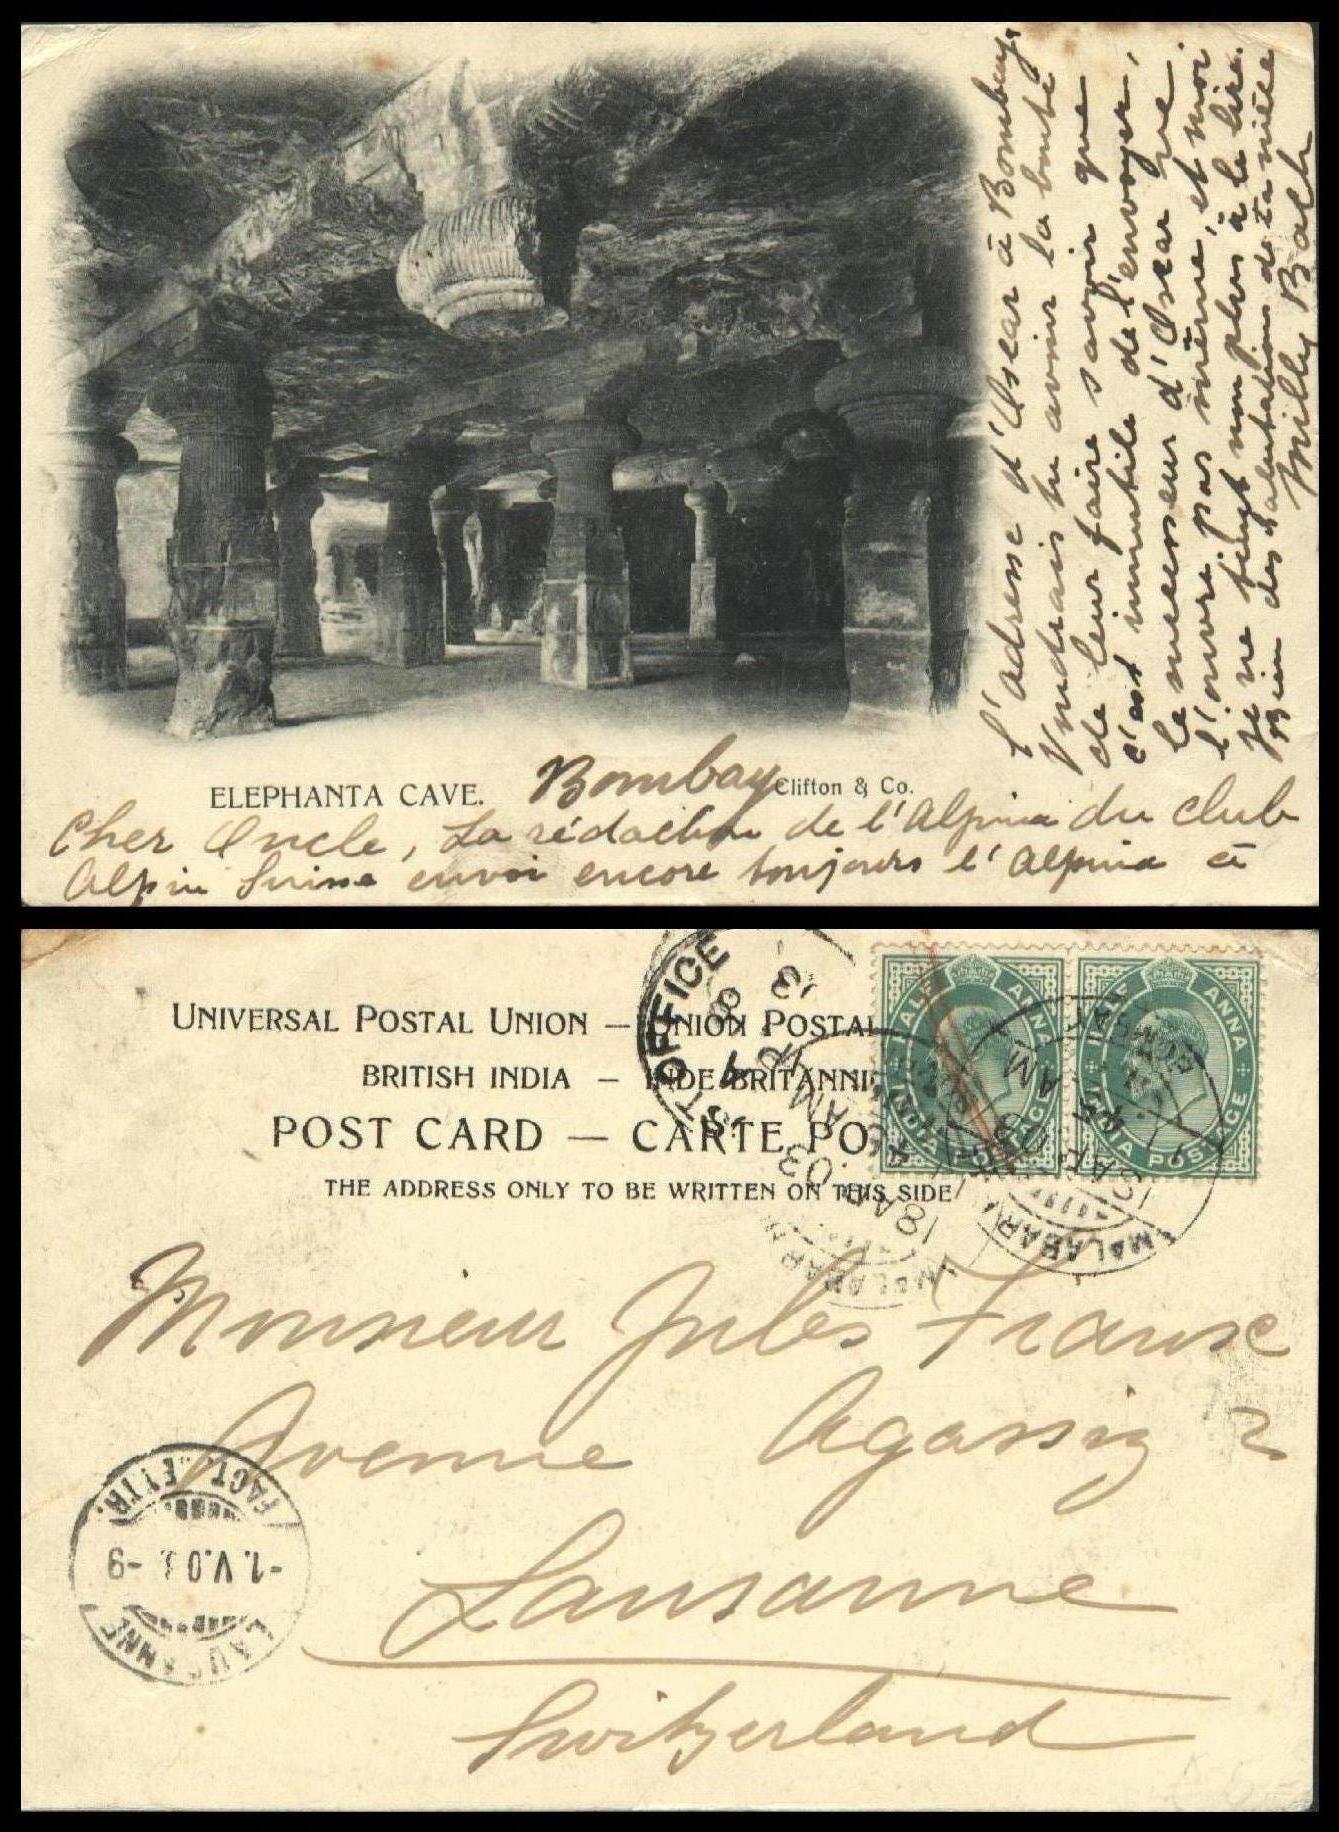 ELEPHANTA CAVE.
Bombay
Clifton & Co.
Cher Oncle, La rédaction de l'Alpina du club
Alpin Suisse envoi encore toujours l'Alpina à
l'adresse d'Oscar à Bombay,
Voudrais tu avoir la bonté
de leur faire savoir que
c'est innutile de l'envoyer,
le successeur d'Oscar ne
l'ouvre pas même, et moi
je ne tiens non plus à le lire.
Bien des salutations de ta nièce
Milly Bach
UNIVERSAL POSTAL UNION — UNION POSTAL
BRITISH INDIA — INDE BRITANNI
POST CARD — CARTE PO
THE ADDRESS ONLY TO BE WRITTEN ON THIS SIDE
ST OFFICE
HALF ANNA
INDIA POSTAGE
HALF ANNA
INDIA POSTAGE
MALABAR
18 AP. 03
AM
BOMBAY
MALABAR
18 AP. 03
AM
Monsieur Jules
Avenue Agassiz 2
Lausanne
Switzerland
LAUSANNE
-1.V.03 -9
FACT. LETTR.